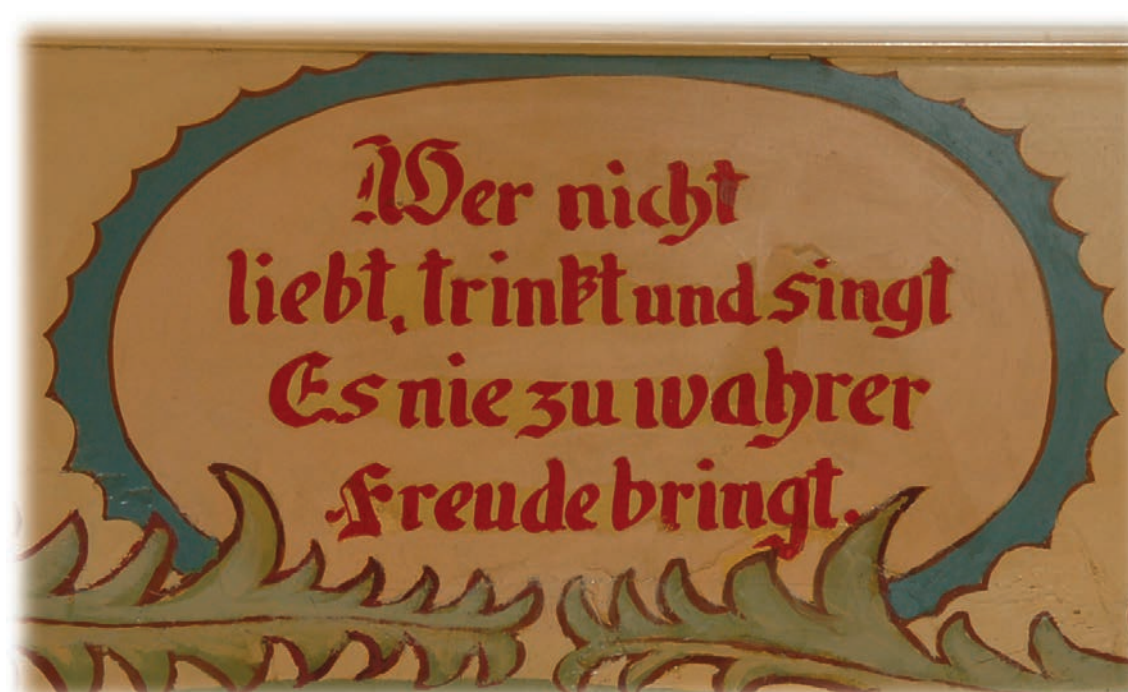 Wer nicht
liebt, trinkt und singt
Es nie zu wahrer
Freude bringt.